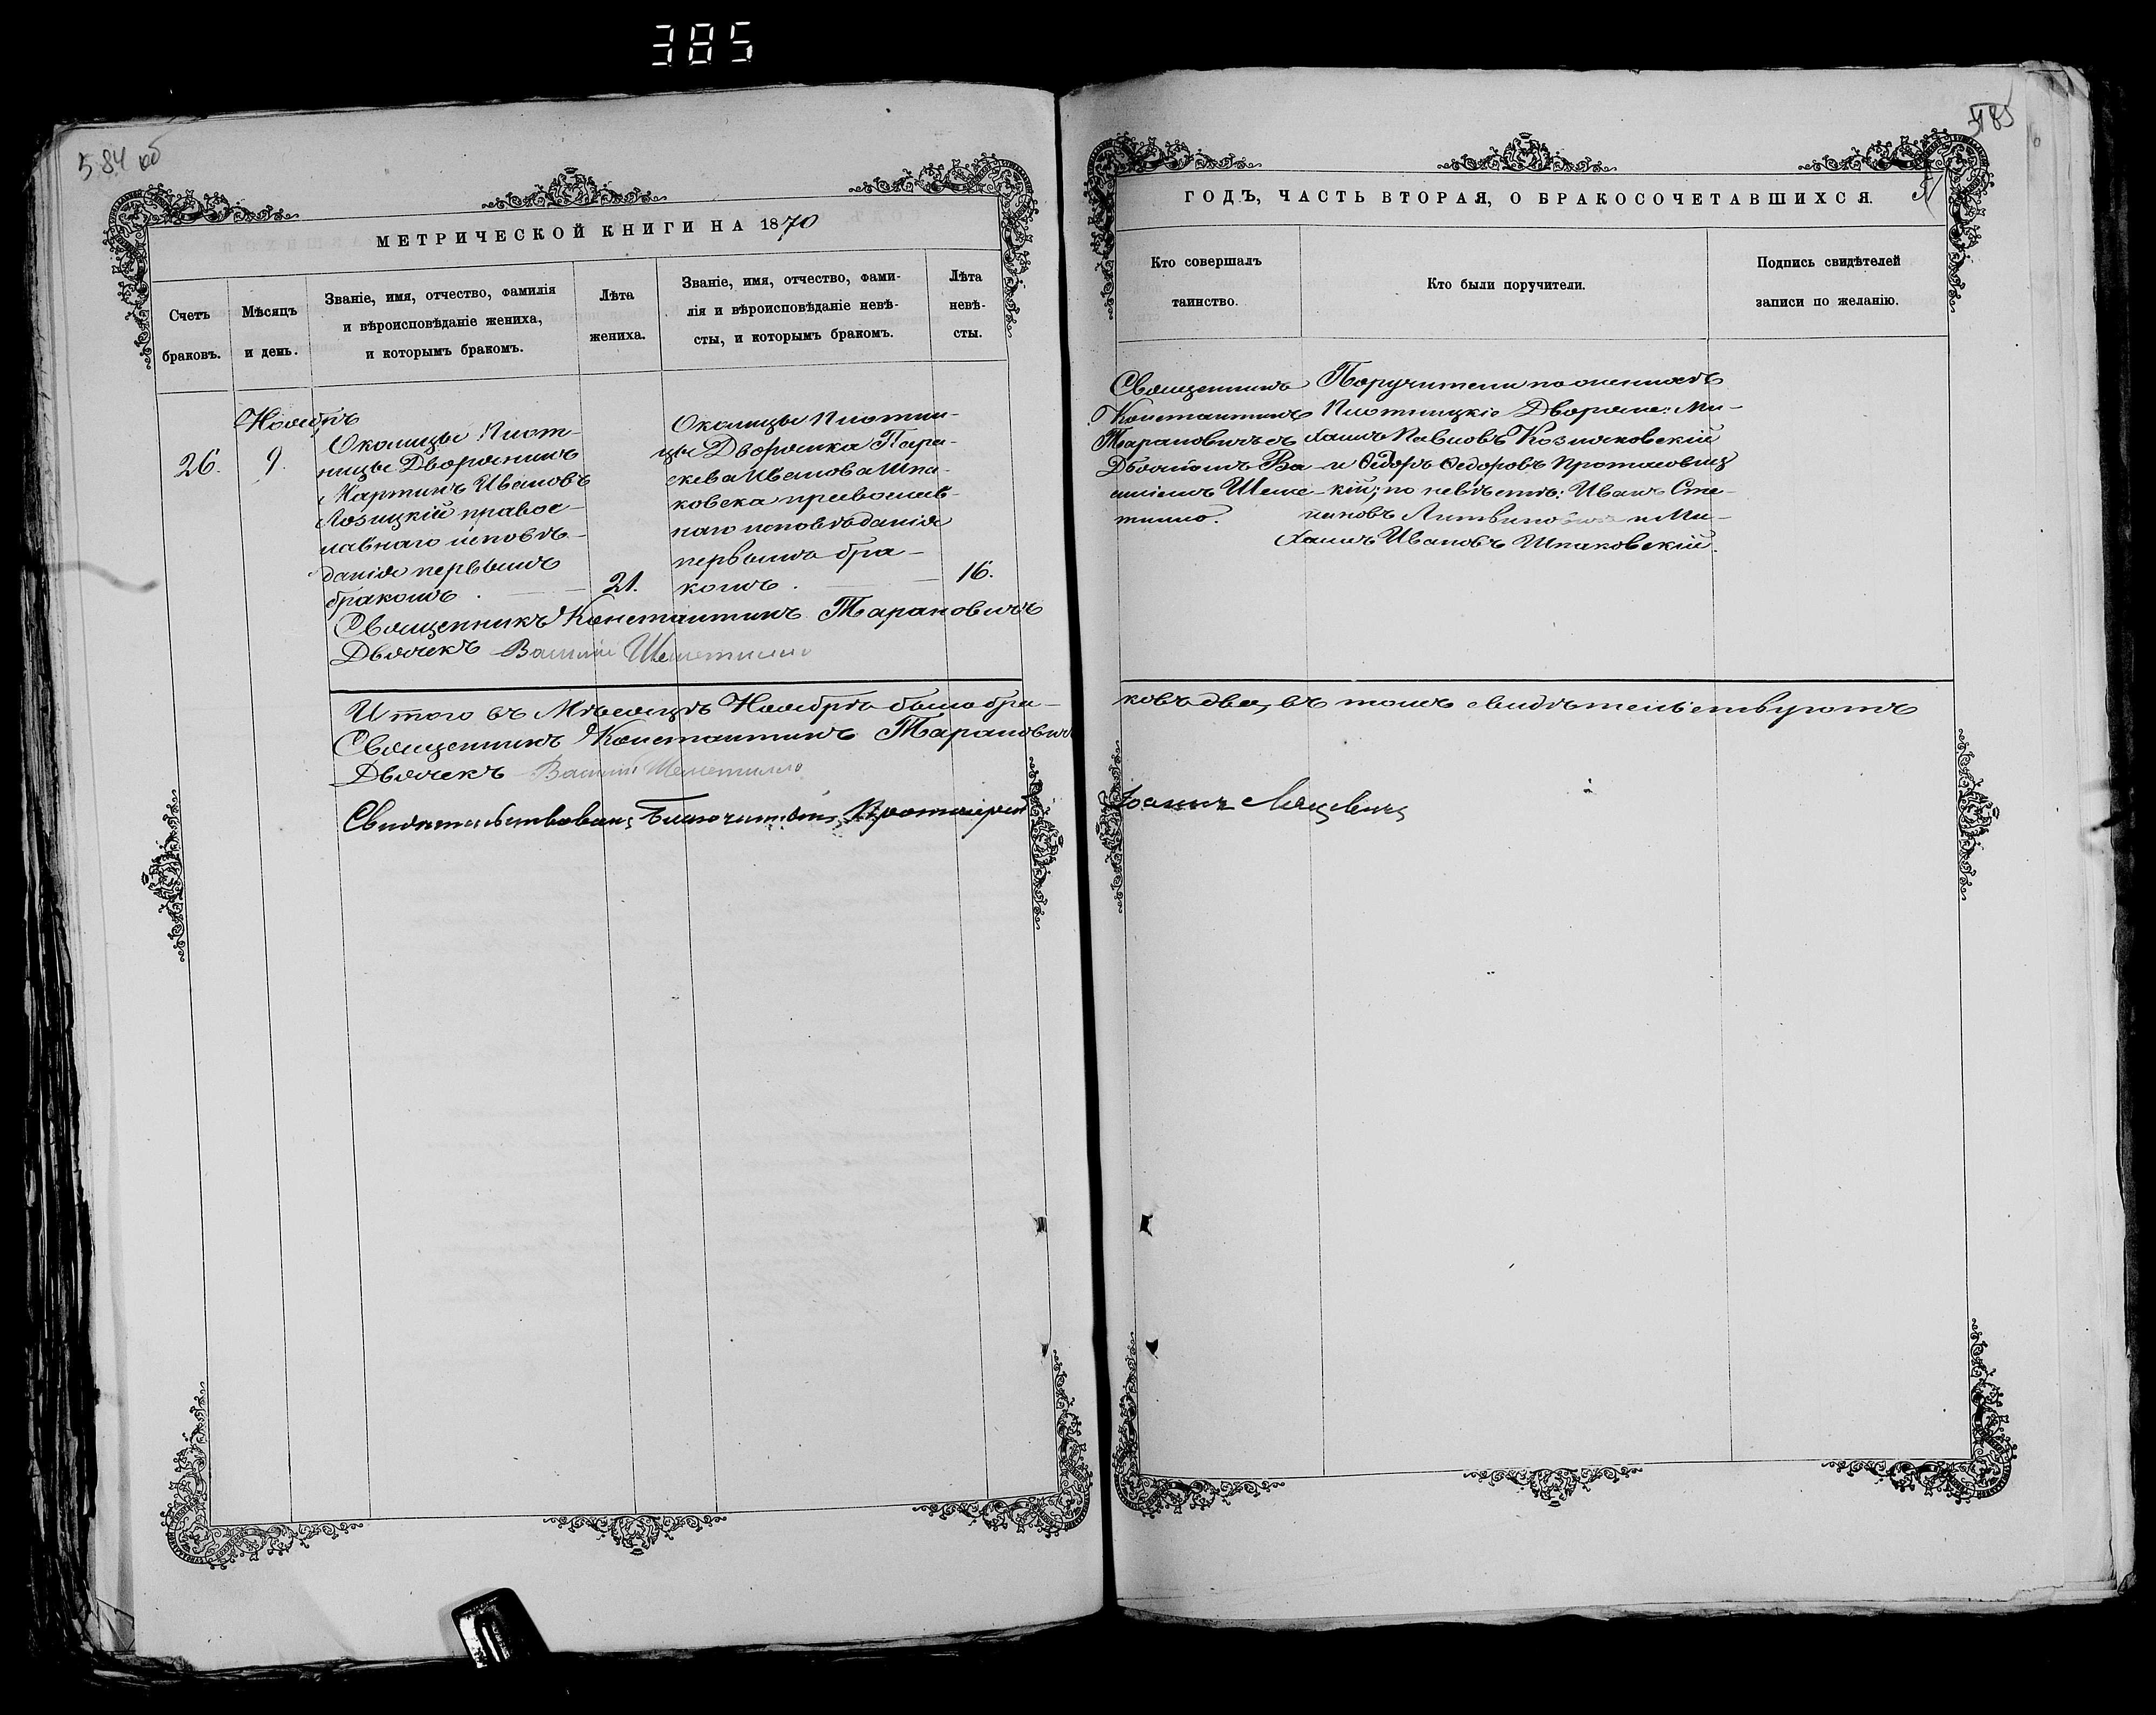 385
584 об
585
МЕТРИЧЕСКОЙ КНИГИ НА 1870
Счетъ браковъ.
Мѣсяцъ и день.
Званіе, имя, отчество, фамилія
и вѣроисповѣданіе жениха,
и которымъ бракомъ.
Лѣта
жениха.
Званіе, имя, отчество, фами-
лія и вѣроисповѣданіе невѣ-
сты, и которымъ бракомъ.
Лѣта
невѣ-
сты.
Ноябрь
26.
9.
Околицы Плот-
ницы Дворянинъ
Мартинъ Ивановъ
Лозицкій правос-
лавнаго исповѣ-
данія первымъ
бракомъ.
21.
Околицы Плотни-
цы Дворянка Пара-
скева Иванова Шпа-
ковска православ-
наго исповѣданія
первымъ бра-
комъ.
16.
Священникъ Константинъ Тарановичъ
Дьячекъ Василій Шеметилло
Итого въ Мѣсяцѣ Ноябрѣ было бра-
Священникъ Константинъ Тарановичъ
Дьячекъ Василій Шеметилло
Свидѣтельствовалъ Благочинный Протоіерей
ГОДЪ, ЧАСТЬ ВТОРАЯ, О БРАКОСОЧЕТАВШИХСЯ.
Кто совершалъ
таинство.
Кто были поручители.
Подпись свидѣтелей
записи по желанію.
Священникъ
Константинъ
Тарановичъ съ
Дьячкомъ Ва-
силіемъ Шеме-
тилло.
Поручители по женихѣ
Плотницкіе Дворяне: Ми-
хаилъ Павловъ Козляковскій
и Ѳедоръ Ѳедоровъ Протасовиц-
кій; по невѣстѣ: Иванъ Сте-
пановъ Литвиновичъ и Ми-
хаилъ Ивановъ Шпаковскій.
ковъ два, въ томъ свидѣтельствуютъ
Іоаннъ Лацевичъ